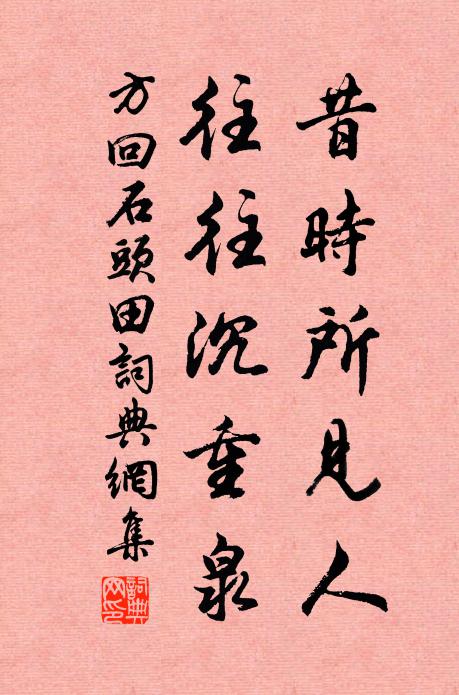 昔時所見人
往往沉重泉
方回石頭田詞典網集
詞典網印